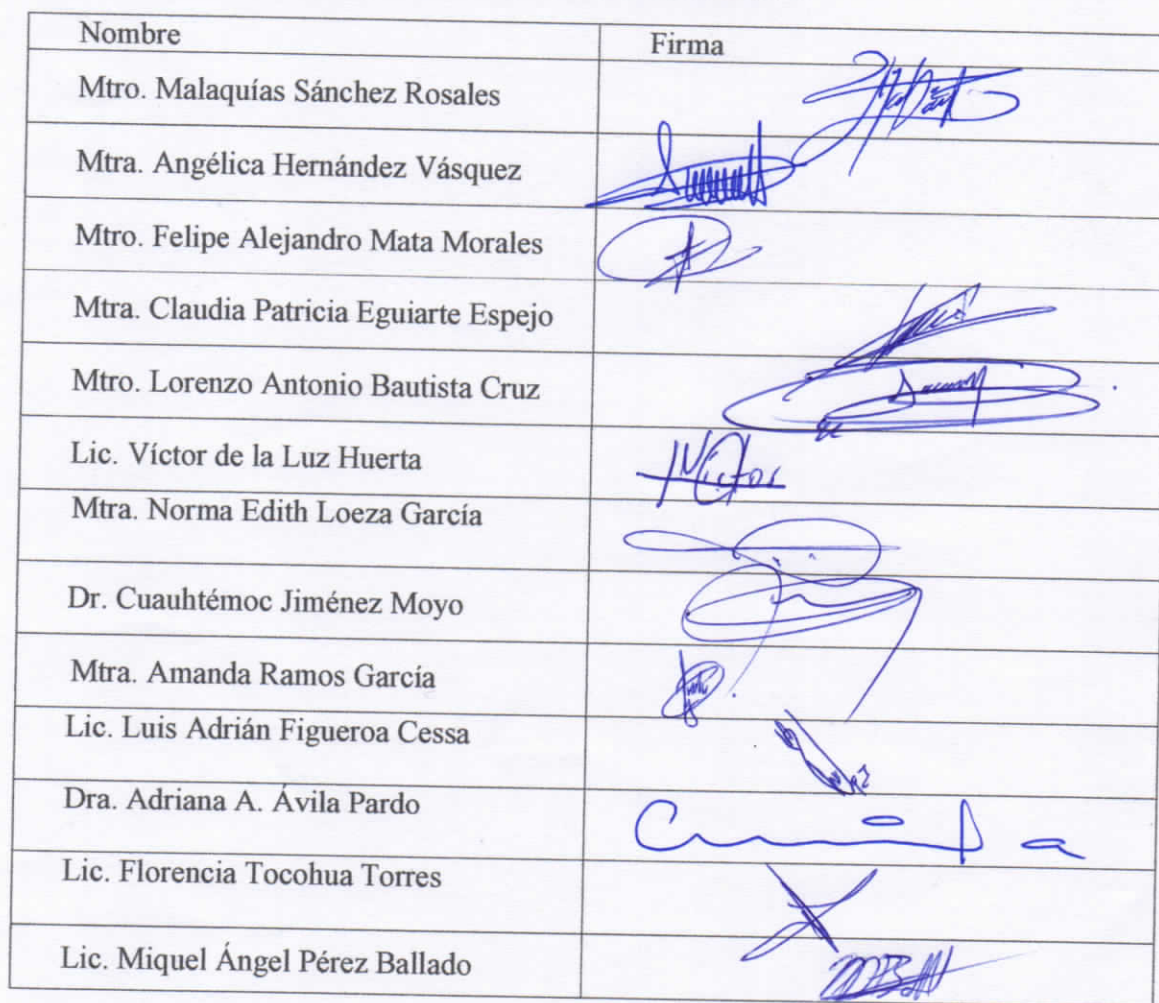 Nombre Firma
Mtro. Malaquías Sánchez Rosales
Mtra. Angélica Hernández Vásquez
Mtro. Felipe Alejandro Mata Morales
Mtra. Claudia Patricia Eguiarte Espejo
Mtro. Lorenzo Antonio Bautista Cruz
Lic. Víctor de la Luz Huerta
Mtra. Norma Edith Loeza García
Dr. Cuauhtémoc Jiménez Moyo
Mtra. Amanda Ramos García
Lic. Luis Adrián Figueroa Cessa
Dra. Adriana A. Ávila Pardo
Lic. Florencia Tocohua Torres
Lic. Miquel Ángel Pérez Ballado